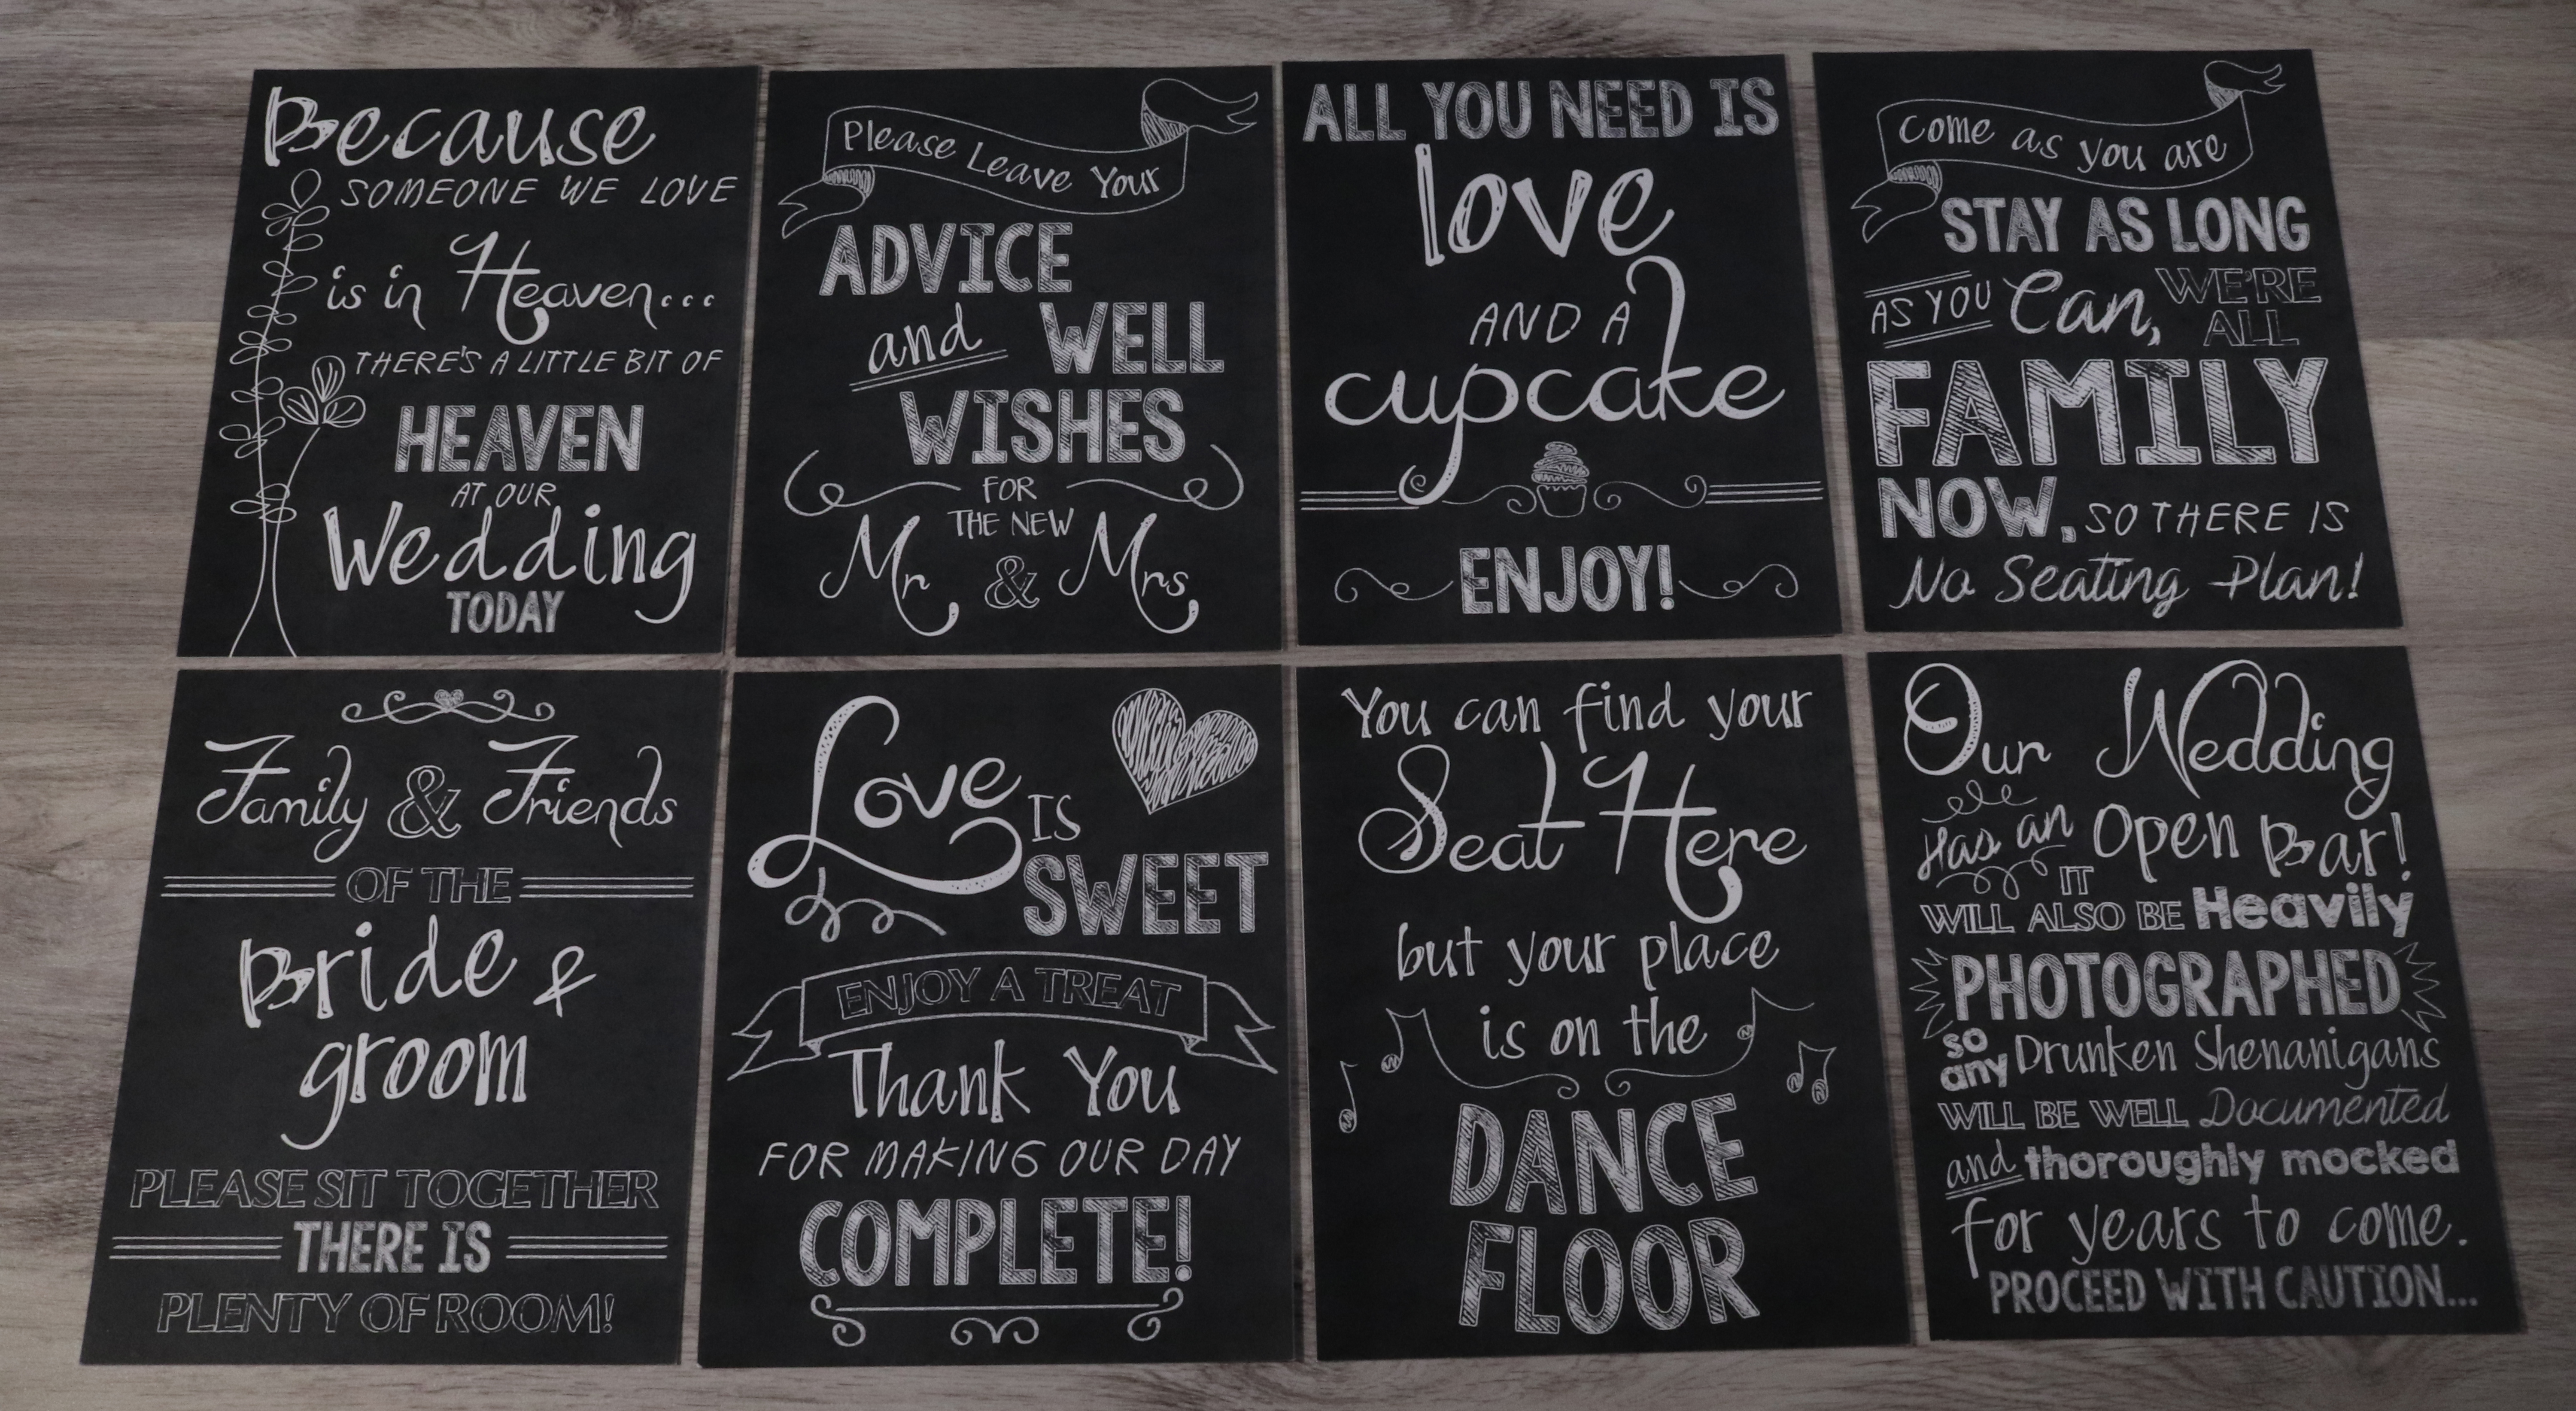 Because
SOMEONE WE LOVE
is in Heaven...
THERE'S A LITTLE BIT OF
HEAVEN
AT OUR
Wedding
TODAY
Please Leave Your
ADVICE
and WELL
WISHES
FOR
THE NEW
Mr & Mrs
ALL YOU NEED IS
love
AND A
cupcake
ENJOY!
Come as you are
STAY AS LONG
AS YOU Can, WE'RE
ALL
FAMILY
NOW, SO THERE IS
No Seating Plan!
Family & Friends
OF THE
Bride &
groom
PLEASE SIT TOGETHER
THERE IS
PLENTY OF ROOM!
Love IS
SWEET
ENJOY A TREAT
Thank You
FOR MAKING OUR DAY
COMPLETE!
You can find your
Seat Here
but your place
is on the
DANCE
FLOOR
Our Wedding
Has an Open Bar!
IT
WILL ALSO BE Heavily
PHOTOGRAPHED
so
any Drunken Shenanigans
WILL BE WELL Documented
and thoroughly mocked
for years to come.
PROCEED WITH CAUTION...